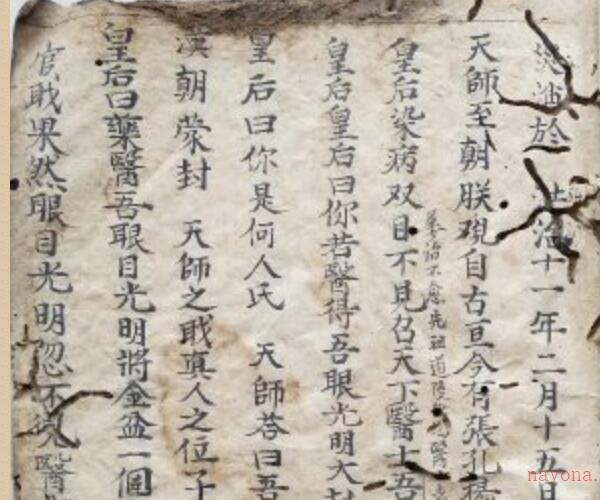 於 治十一年二月十五日
天師至朝朕覌自古亘今有張孔
治不愈先祖道陵 醫
皇后染病双目不見召天下醫士吾
皇后皇后曰你若醫得吾眼光明大封
皇后曰你是何人氏 天師答曰吾
漢朝荣封 天師之戝真人之位子
皇后曰藥醫吾眼目光明將金盆一個
官戝果然眼目光明忽不見醫
nayona.